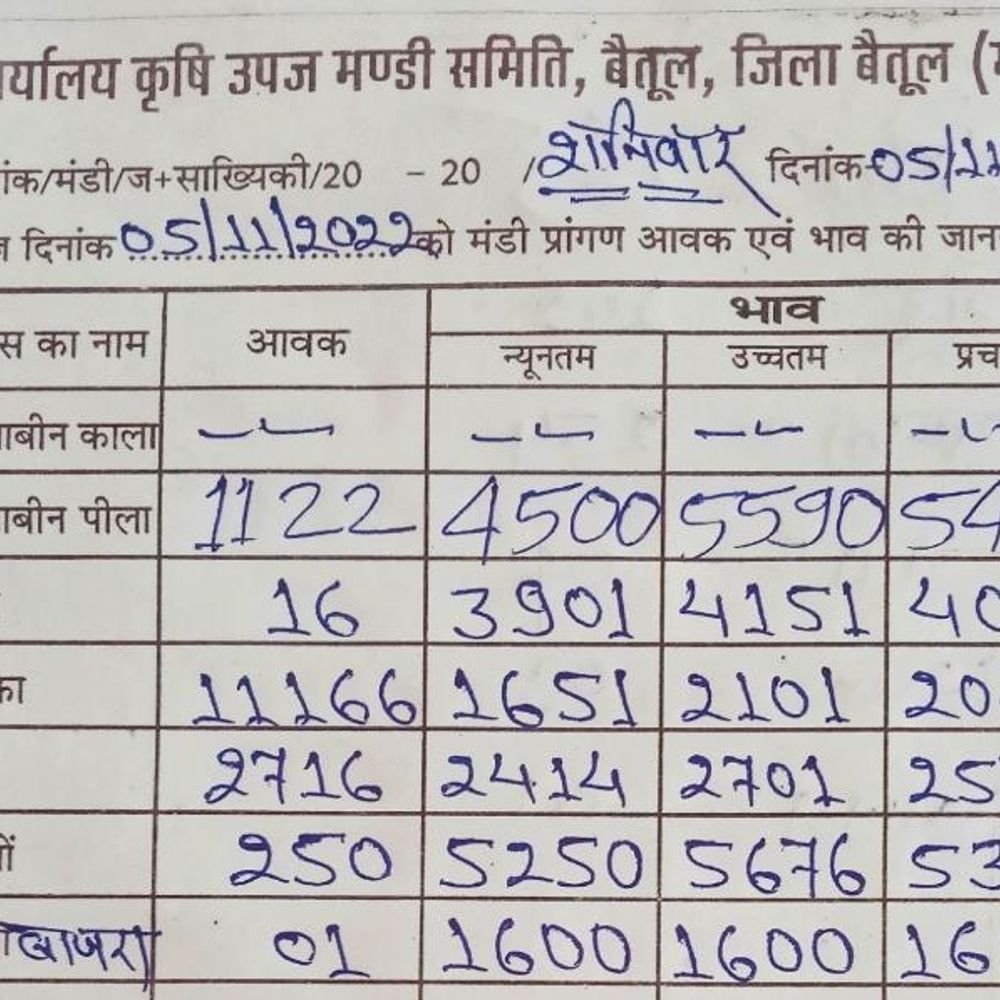 र्यालय कृषि उपज मण्डी समिति, बैतूल, जिला बैतूल (
ांक/मंडी/ज+साख्यिकी/20 - 20 / शनिवार दिनांक 05/11
दिनांक 05/11/2022 को मंडी प्रांगण आवक एवं भाव की जान
स का नाम आवक भाव
न्यूनतम उच्चतम प्रच
ाबीन काला -- -- -- --
ाबीन पीला 1122 4500 5590 54
16 3901 4151 40
का 11166 1651 2101 20
2716 2414 2701 25
ों 250 5250 5676 53
बाजरा 01 1600 1600 16